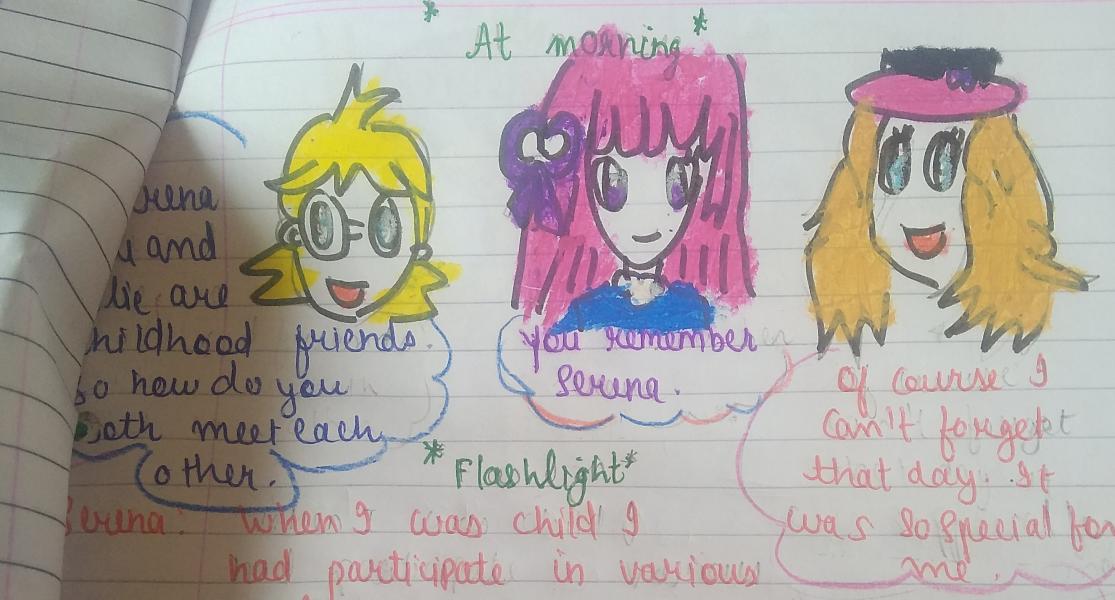 * At morning *
and
are
friends.
so how do you
meet each
other.
you remember
Serena.
Of course I
can't forget
that day. It
was so special for
me.
* Flashlight *
Serena: When I was child I
had participate in various